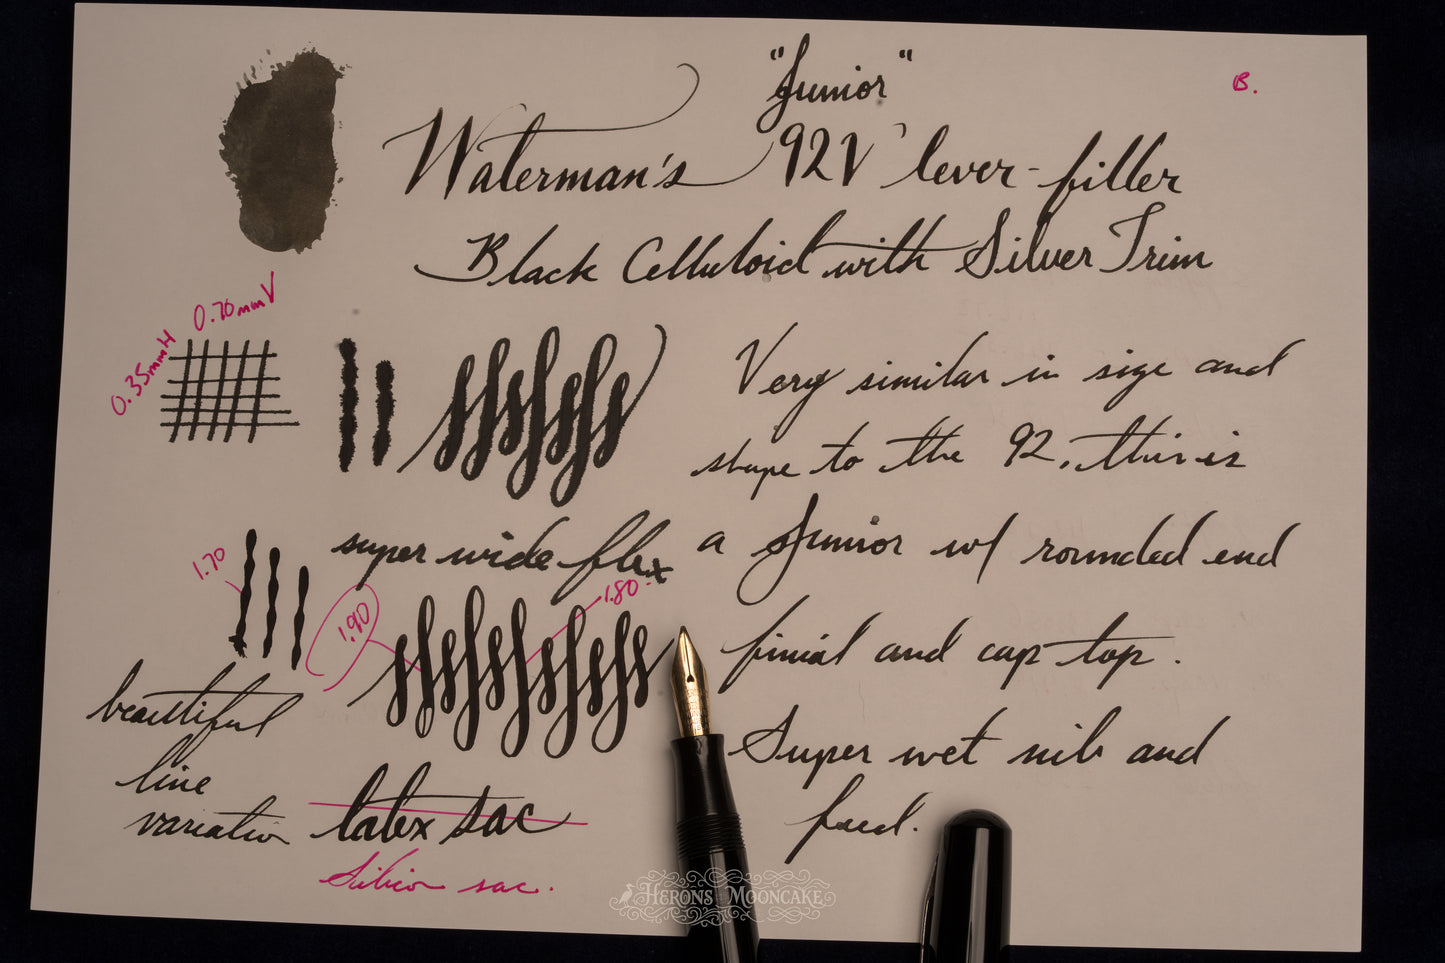 "Junior"
B.
Waterman's 92V lever-filler
Black Celluloid with Silver Trim
0.70mmV
0.35mmH
Very similar in size and
shape to the 92, this is
a Junior w/ rounded end
finial and cap top.
Super wet nib and
feed.
super wide flex
1.70
1.90
1.80
beautiful
line
variation
latex sac
Silicon sac.
HERONS MOONCAKE